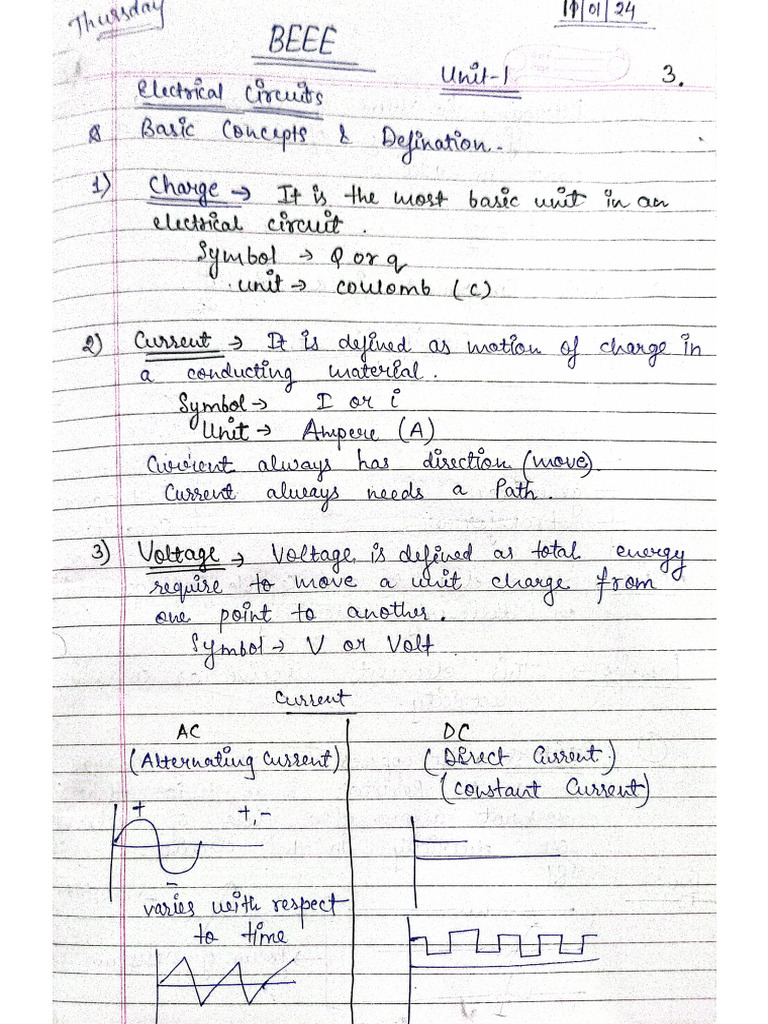 Thursday
BEEE
Unit-1
3.
Electrical Circuits
Basic Concepts & Defination.
1) Charge → It is the most basic unit in an
electrical circuit.
Symbol → Q or q
unit → coulomb (c)
2) Current → It is defined as motion of charge in
a conducting material.
Symbol → I or i
Unit → Ampere (A)
Current always has direction (move)
Current always needs a Path.
3) Voltage → Voltage is defined as total energy
require to move a unit charge from
one point to another.
Symbol → V or Volt
Current
AC
DC
(Alternating Current)
(Direct Current)
(Constant Current)
+
+,-
-
varies with respect
to time